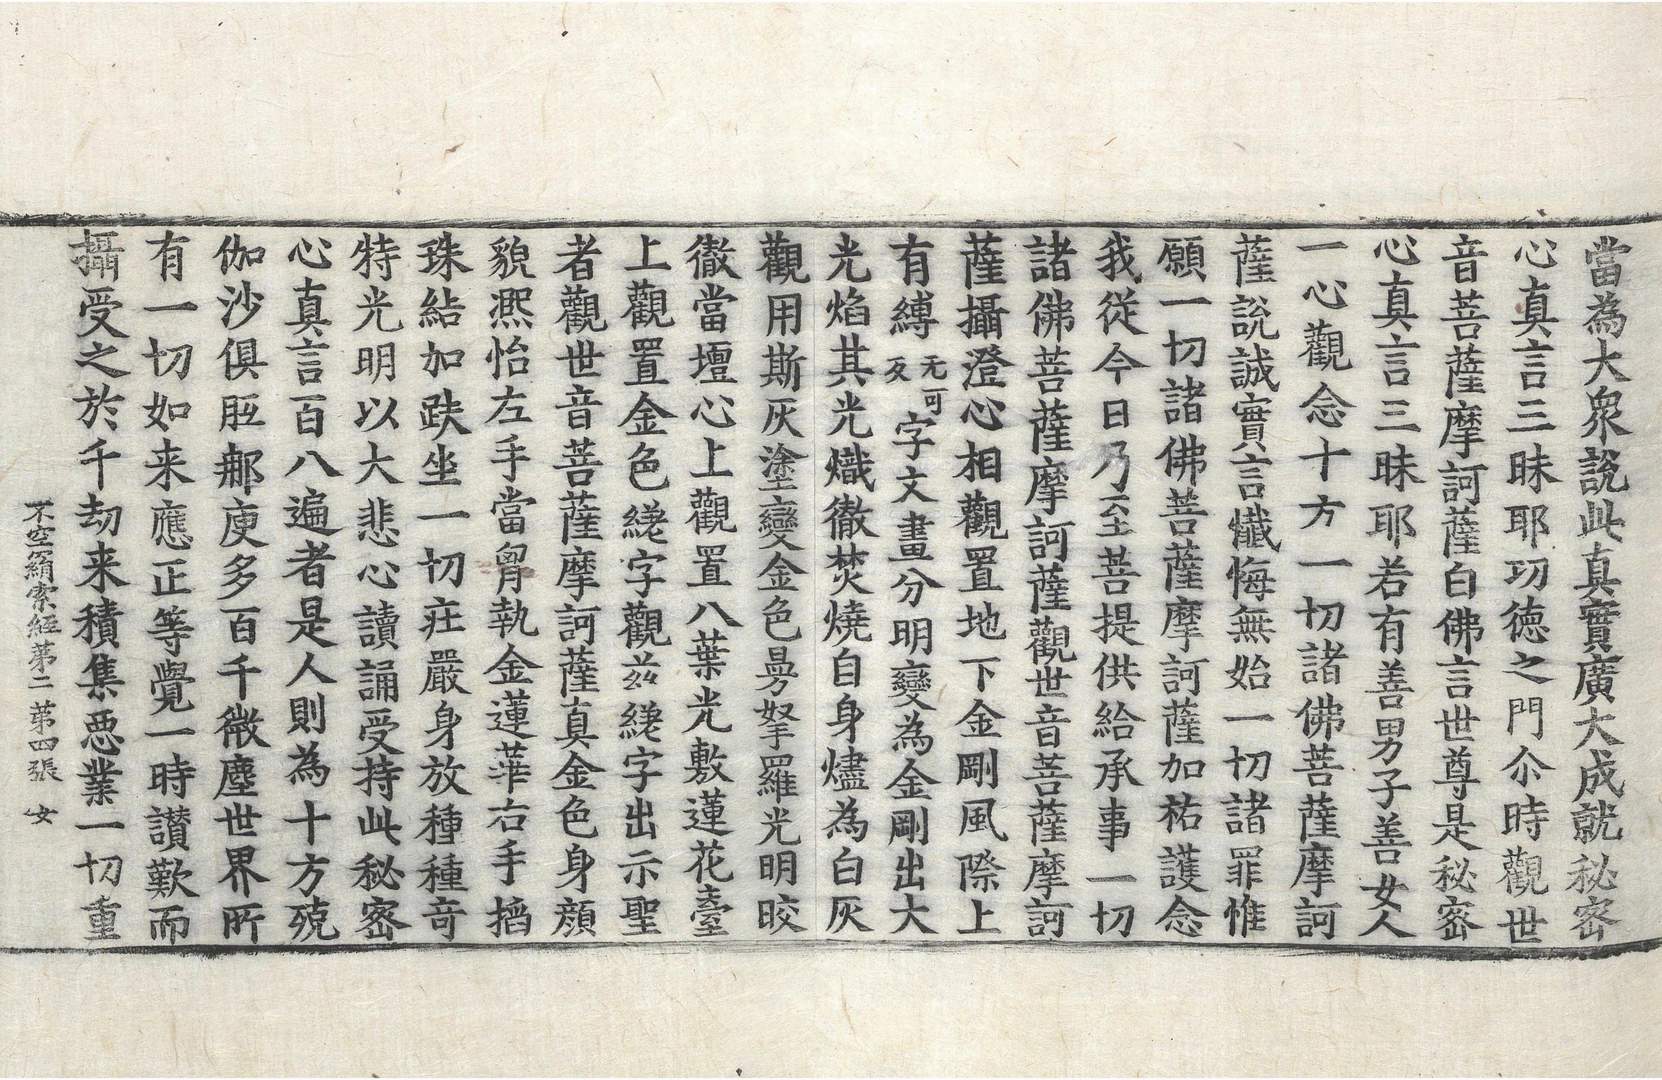 當為大衆說此真實廣大成就秘密
心真言三昧耶功德之門尒時觀世
音菩薩摩訶薩白佛言世尊是秘密
心真言三昧耶若有善男子善女人
一心觀念十方一切諸佛菩薩摩訶
薩說誠實言懺悔無始一切諸罪惟
願一切諸佛菩薩摩訶薩加祐護念
我從今日乃至菩提供給承事一切
諸佛菩薩摩訶薩觀世音菩薩摩訶
薩攝澄心相觀置地下金剛風際上
有縛无可反字文畫分明變為金剛出大
光焰其光熾徹焚燒自身燼為白灰
觀用斯灰塗變金色曼拏羅光明晈
徹當壇心上觀置八葉光敷蓮花臺
上觀置金色字觀字出示聖
者觀世音菩薩摩訶薩真金色身顏
貌熈怡左手當胷執金蓮華右手搯
珠結加趺坐一切莊嚴身放種種奇
特光明以大悲心讀誦受持此秘密
心真言百八遍者是人則為十方殑
伽沙俱胝那庾多百千微塵世界所
有一切如来應正等覺一時讃歎而
攝受之於千劫来積集惡業一切重
不空羂索經第二 第四張 女